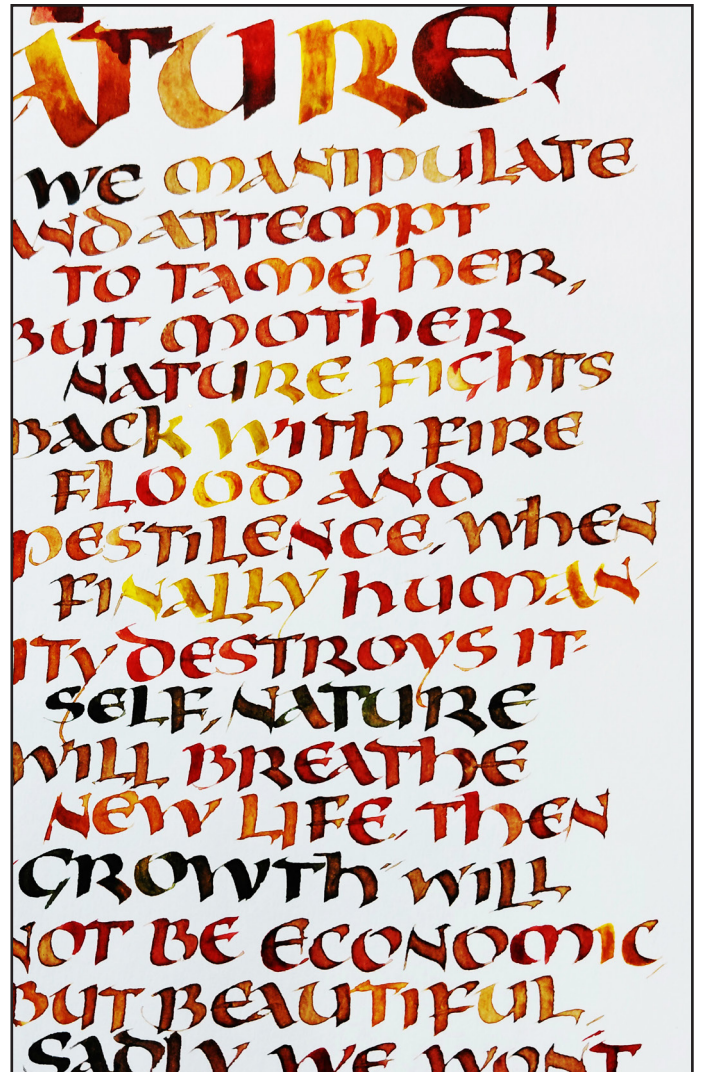 ATURE!
WE MANIPULATE
AND ATTEMPT
TO TAME HER,
BUT MOTHER
NATURE FIGHTS
BACK WITH FIRE
FLOOD AND
PESTILENCE. WHEN
FINALLY HUMAN-
ITY DESTROYS IT-
SELF, NATURE
WILL BREATHE
NEW LIFE. THEN
"GROWTH" WILL
NOT BE ECONOMIC
BUT BEAUTIFUL.
SADLY WE WON'T